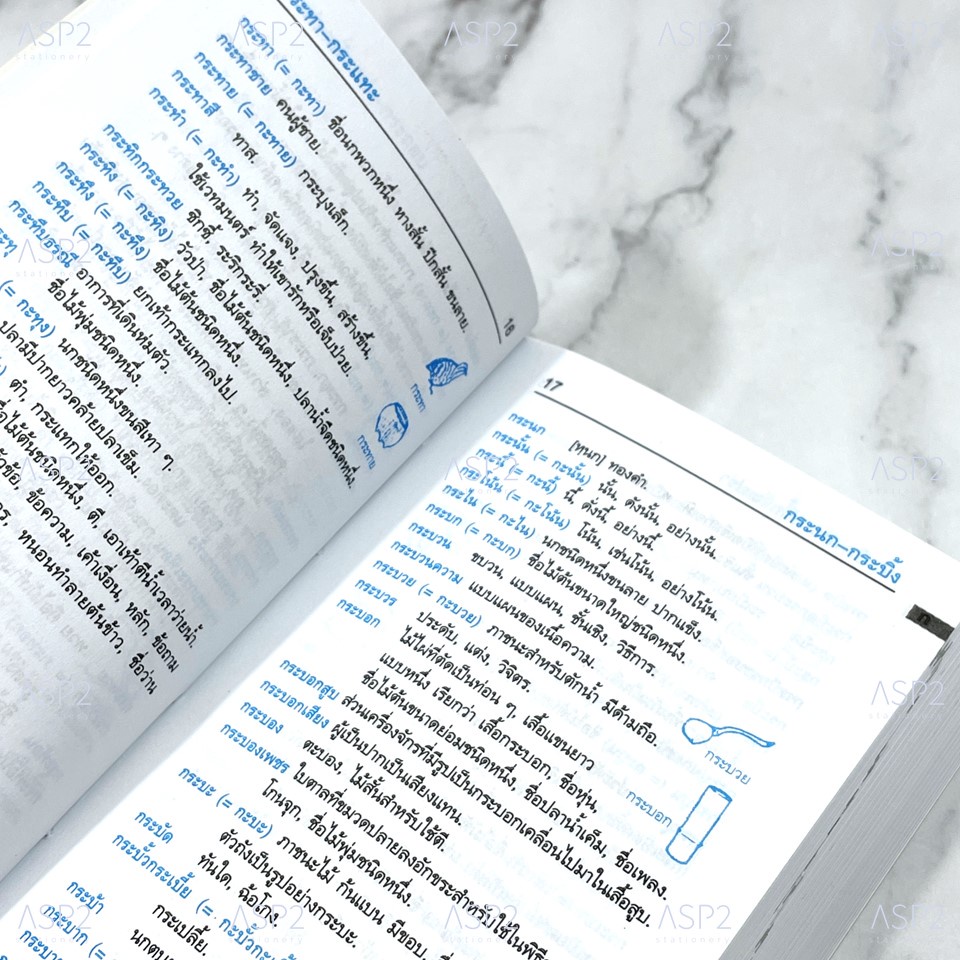 ระทา–กระแทะ
กระทา (= กะทา) ชื่อนกพวกหนึ่ง หางสั้น ปีกสั้น ขนลาย.
กระทาชาย คนผู้ชาย.
กระทาย (= กะทาย) กระบุงเล็ก.
กระทาสี ทาส.
กระทำ (= กะทำ) ทำ, จัดแจง, ปรุงขึ้น, สร้างขึ้น,
ใช้เวทมนตร์ ทำให้เขารักหรือเจ็บป่วย.
กระทิกกระทวย ซิกซี้, ระริกระรี่.
กระทิง (= กะทิง) วัวป่า, ชื่อไม้ต้นชนิดหนึ่ง, ปลาน้ำจืดชนิดหนึ่ง.
กระทึง (= กะทึง) ชื่อไม้ต้นชนิดหนึ่ง.
กระทืบ (= กะทืบ) ยกเท้ากระแทกลงไป.
กระทืบธรณี อาการที่เดินห่มตัว.
ชื่อไม้พุ่มชนิดหนึ่ง.
(= กะทุง) นกชนิดหนึ่งขนสีเทา ๆ.
ปลามีปากยาวคล้ายปลาเข็ม.
ตำ, กระแทกให้ออก.
ชื่อไม้ต้นชนิดหนึ่ง, ตี, เอาเท้าตีน้ำเวลาว่ายน้ำ.
หัวข้อ, ข้อความ, เค้าเงื่อน, หลัก, ข้อถาม
หนอนทำลายต้นข้าว, ชื่อว่าน
กระทา
กระทาย
16
17
กระนก–กระบิ้ง
กระนก [หฺนก] ทองคำ.
กระนั้น (= กะนั้น) นั้น, ดังนั้น, อย่างนั้น.
กระนี้ (= กะนี้) นี้ ดั่งนี้, อย่างนี้.
กระโน้น (= กะโน้น) โน้น, เช่นโน้น, อย่างโน้น.
กระไน (= กะไน) นกชนิดหนึ่งขนลาย ปากแข็ง.
กระบก (= กะบก) ชื่อไม้ต้นขนาดใหญ่ชนิดหนึ่ง.
กระบวน ขบวน, แบบแผน, ชั้นเชิง, วิธีการ.
กระบวนความ แบบแผนของเนื้อความ.
กระบวย (= กะบวย) ภาชนะสำหรับตักน้ำ มีด้ามถือ.
กระบวร ประดับ, แต่ง, วิจิตร.
กระบอก ไม้ไผ่ที่ตัดเป็นท่อน ๆ, เสื้อแขนยาว
แบบหนึ่ง เรียกว่า เสื้อกระบอก, ชื่อหุ่น,
ชื่อไม้ต้นขนาดย่อมชนิดหนึ่ง, ชื่อปลาน้ำเค็ม, ชื่อเพลง.
กระบอกสูบ ส่วนเครื่องจักรที่มีรูปเป็นกระบอกเคลื่อนไปมาในเสื้อสูบ.
กระบอกเสียง ผู้เป็นปากเป็นเสียงแทน.
กระบอง ตะบอง, ไม้สั้นสำหรับใช้ตี.
กระบองเพชร ใบตาลที่ขมวดปลายลงอักขระสำหรับใช้ในพิธี
โกนจุก, ชื่อไม้พุ่มชนิดหนึ่ง.
กระบะ (= กะบะ) ภาชนะไม้ ก้นแบน มีขอบ,
ตัวถังเป็นรูปอย่างกระบะ.
กระบัด ทันใด, ฉ้อโกง
กระบั้วกระเบี้ย (= กะบั้วกระ
กระเปลี้ย
กระบ้า
กระบาก (=
กระบวย
กระบอก